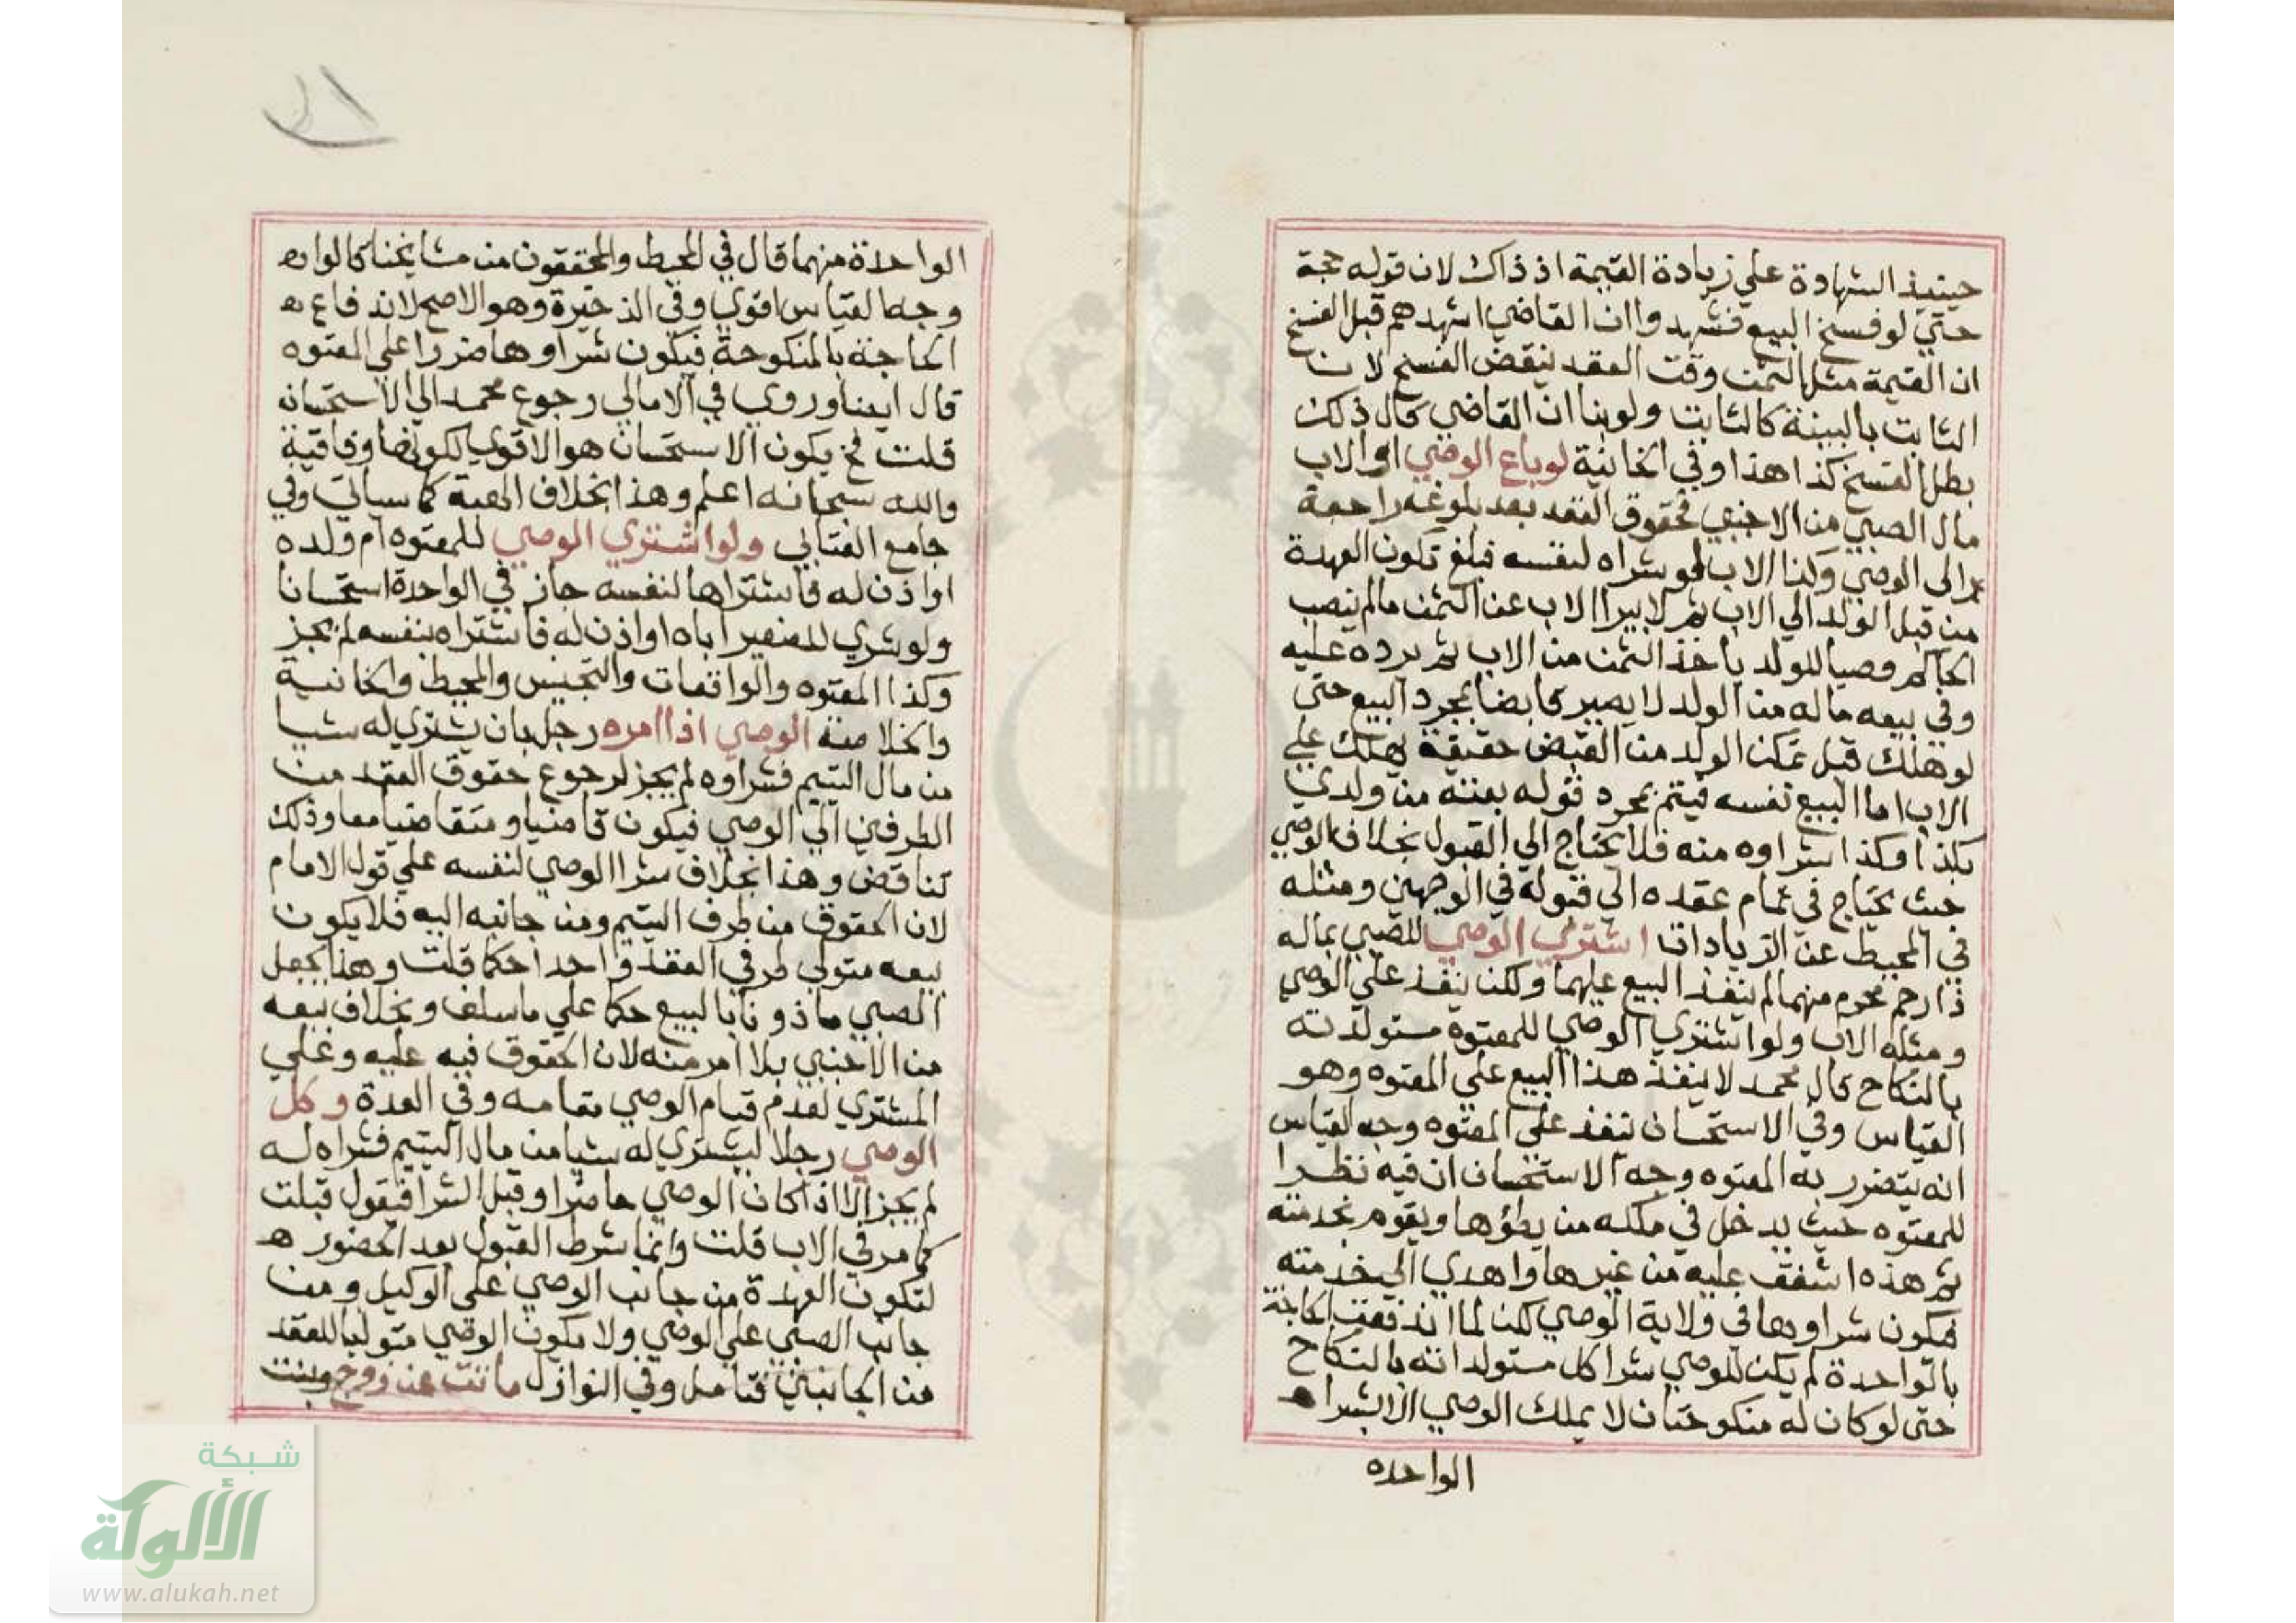 حينيذ الشهادة علي زيادة القيمة اذ ذاك لان قوله حجة
حتي لو فسخ البيع فشهدوا ان القاضي اشهدهم قبل الفسخ
ان القيمة مثل الثمن وقت العقد ينقض الفسخ لان
الثابت بالبينة كالثابت ولو بنا ان القاضي قال ذلك
بطل الفسخ كذا هذا وفي الخانية لو باع الوصي او الاب
مال الصبي من الاجنبي فحقوق العقد بعد بلوغه راجعة
الي الوصي وكذا الاب فلو شراه لنفسه فبلغ تكون العهدة
من قبل الولد الي الاب ثم لا يبرا الاب عن الثمن مالم ينصب
الحاكم وصيا للولد ياخذ الثمن من الاب ثم يرده عليه
وفي بيعه ماله من الولد لا يصير قابضا بمجرد البيع حتي
لو هلك قبل تمكن الولد من القبض حقيقة يهلك علي
الاب اما البيع نفسه فيتم بمجرد قوله بعته من ولدي
بكذا وكذا شراوه منه فلا يحتاج الي القبول بخلاف الوصي
حيث يحتاج في تمام عقده الي قبوله في الوجهين ومثله
في المحيط عن الزيادات اشتري الوصي للصبي بماله
ذا رحم محرم منهما لم ينفذ البيع عليهما ولكن ينفذ علي الوصي
ومثله الاب ولو اشتري الوصي للمعتوه مستولدته
بالنكاح قال محمد لا ينفذ هذا البيع علي المعتوه وهو
القياس وفي الاستحسان ينفذ علي المعتوه وجه القياس
انه يتضرر به المعتوه وجه الاستحسان ان فيه نظرا
للمعتوه حيث يدخل في ملكه من يطؤها ويقوم بخدمته
ثم هذه اشفق عليه من غيرها واهدي الي خدمته
فيكون شراوها في ولاية الوصي لكن لما اندفعت الحاجة
بالواحدة لم يكن للوصي شرا كل مستولداته بالنكاح
حتي لو كان له منكوحتان لا يملك الوصي الا شرا
الواحده
الواحدة منهما قال في المحيط والمحققون من مشايخنا قالوا
وجه القياس اقوي وفي الذخيرة وهو الاصح لاندفاع
الحاجة بالمنكوحة فيكون شراوها ضررا علي المعتوه
قال ايضا وروي في الامالي رجوع محمد الي الاستحسان
قلت فح يكون الاستحسان هو الاقوي لكونها وفاقية
والله سبحانه اعلم وهذا بخلاف الهبة كما سياتي وفي
جامع الفتاوي ولو اشتري الوصي للمعتوه ام ولده
او اذن له فاشتراها لنفسه جاز في الواحدة استحسانا
ولو شري للصغير اباه او اذن له فاشتراه بنفسه لم يجز
وكذا المعتوه والواقعات والتجنيس والمحيط والخانية
والخلاصة الوصي اذا امره رجل بان يشتري له شيا
من مال اليتيم فشراوه لم يجز لرجوع حقوق العقد من
الطرفين الي الوصي فيكون قاضيا ومتقاضيا معا وذلك
تناقض وهذا بخلاف شرا الوصي لنفسه علي قول الامام
لان الحقوق من طرف اليتيم ومن جانبه اليه فلا يكون
بيعه متولي طرفي العقد واحدا حكما قلت وهذا يجعل
الصبي ماذونا بالبيع حكما علي ما سلف وبخلاف بيعه
من الاجنبي بلا امر منه لان الحقوق فيه عليه وعلي
المشتري لعدم قيام الوصي مقامه وفي العدة وكل
الوصي رجلا ليشتري له شيا من مال اليتيم فشراه له
لم يجز الا اذا كان الوصي حاضرا وقبل الشرا فيقول قبلت
كما مر في الاب قلت وانما شرط القبول بعد الحضور
لتكون العهدة من جانب الوصي علي الوكيل ومن
جانب الصبي علي الوصي ولا يكون الوصي متوليا للعقد
من الجانبين فتامل وفي النوازل ماتت عن زوج وبنت
شبكة
الألوكة
www.alukah.net